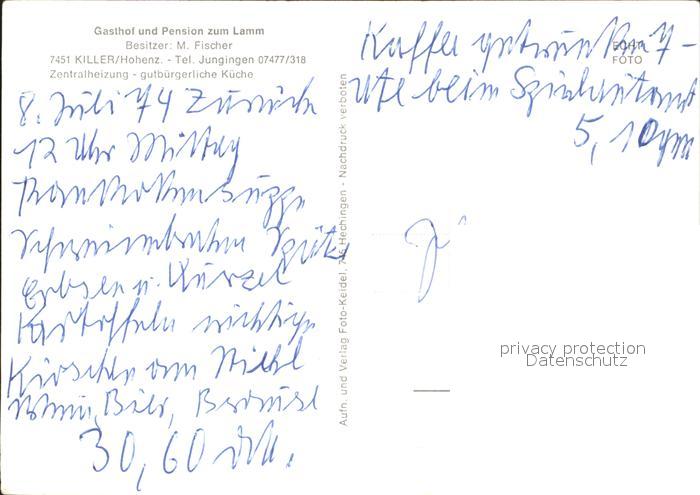 Gasthof und Pension zum Lamm
Besitzer: M. Fischer
7451 KILLER/Hohenz. - Tel. Jungingen 07477/318
Zentralheizung - gutbürgerliche Küche
8. Juli 74 Zurück
12 Uhr Mittag
Schweinebraten Spätz
Erbsen u. Wurzel
Kartoffeln
Kirschen am Stiel
Bier,
30,60 DM.
Aufn. und Verlag Foto-Keidel, 745 Hechingen - Nachdruck verboten
Kaffee getrunken 7 -
ECHT
FOTO
Ute beim
5, 10
privacy protection
Datenschutz